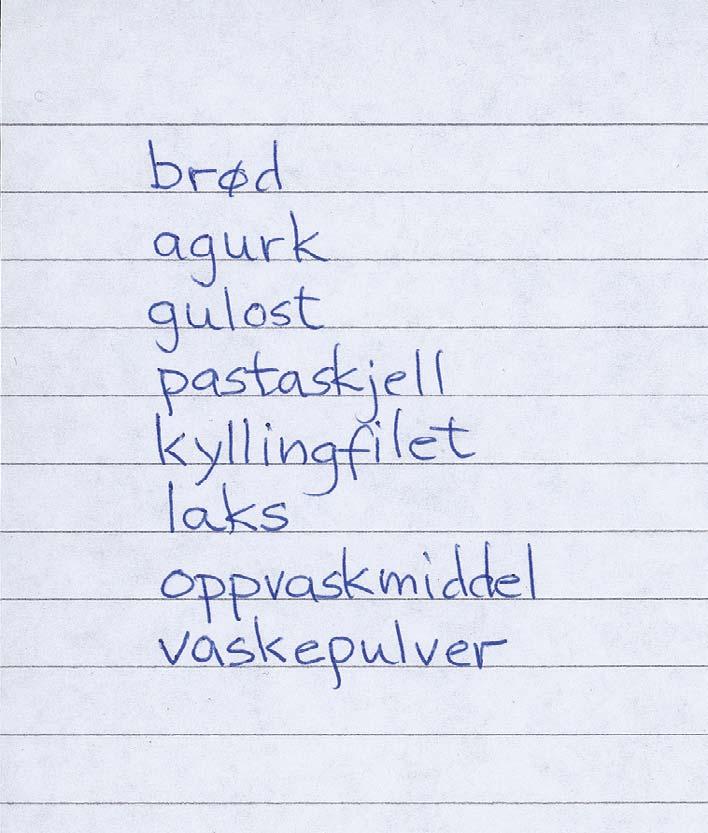 brød
agurk
gulost
pastaskjell
kyllingfilet
laks
oppvaskmiddel
vaskepulver